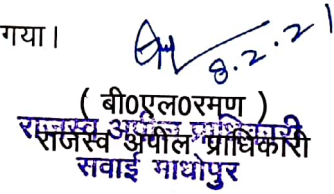 गया।
8.2.21
( बी0एल0रमण )
राजस्व अपील प्राधिकारी
राजस्व अपील प्राधिकारी
सवाई माधोपुर